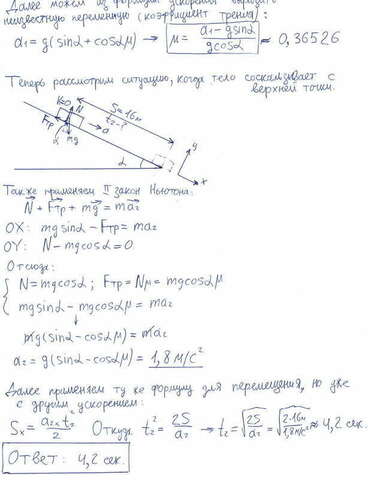 Далее можем из формулы ускорения выразить
неизвестную переменную (коэффициент трения):
a₁ = g(sinα + cosαμ) → μ = (a₁ - gsinα)/(gcosα) ≈ 0,36526
Теперь рассмотрим ситуацию, когда тело соскальзывает с
верхней точки.
N
S=16м
t₂-?
a
Fтр
mg
α
α
y
x
Также применяем II закон Ньютона:
N + Fтр + mg = ma₂
OX: mgsinα - Fтр = ma₂
OY: N - mgcosα = 0
Отсюда:
N = mgcosα ; Fтр = Nμ = mgcosαμ
mgsinα - mgcosαμ = ma₂
↓
mg(sinα - cosαμ) = ma₂
a₂ = g(sinα - cosαμ) = 1,8 м/с²
Далее применяем ту же формулу для перемещения, но уже
с другим ускорением:
Sₓ = a₂ₓt₂²/2 Откуда t₂² = 2S/a₂ → t₂ = √(2S/a₂) = √(2·16м/1,8м/с²) ≈ 4,2 сек.
Ответ: 4,2 сек.